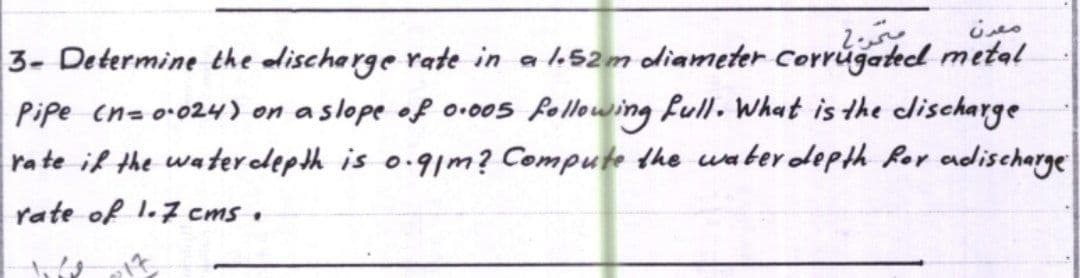 معدن
3- Determine the discharge rate in a 1.52m diameter corrugated metal
Pipe (n=0.024) on a slope of 0.005 following full. What is the discharge
rate if the waterdepth is 0.91m? Compute the water depth for adischarge
rate of 1.7 cms.